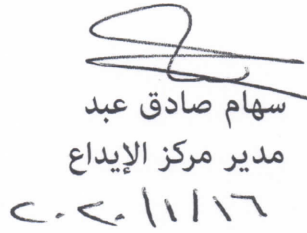 سهام صادق عبد
مدير مركز الإيداع
٢٠٢٠/١/١٦